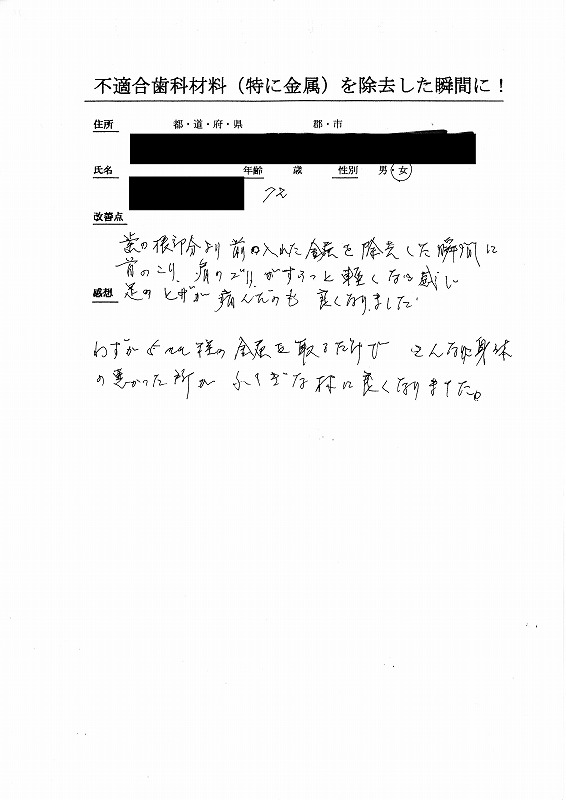 不適合歯科材料（特に金属）を除去した瞬間に！
住所 都・道・府・県 郡・市
氏名 年齢 歳 性別 男・女
72
改善点
歯の根部分より前の入れた金属を除去した瞬間に
首のこり、肩のこり、がすうっと軽くなる感じ
感想 足のヒザが病んだのも良くなりました
わずか 程の金属を取るだけで こんなに身体
の悪かった所が ふしぎな様に良くなりました。